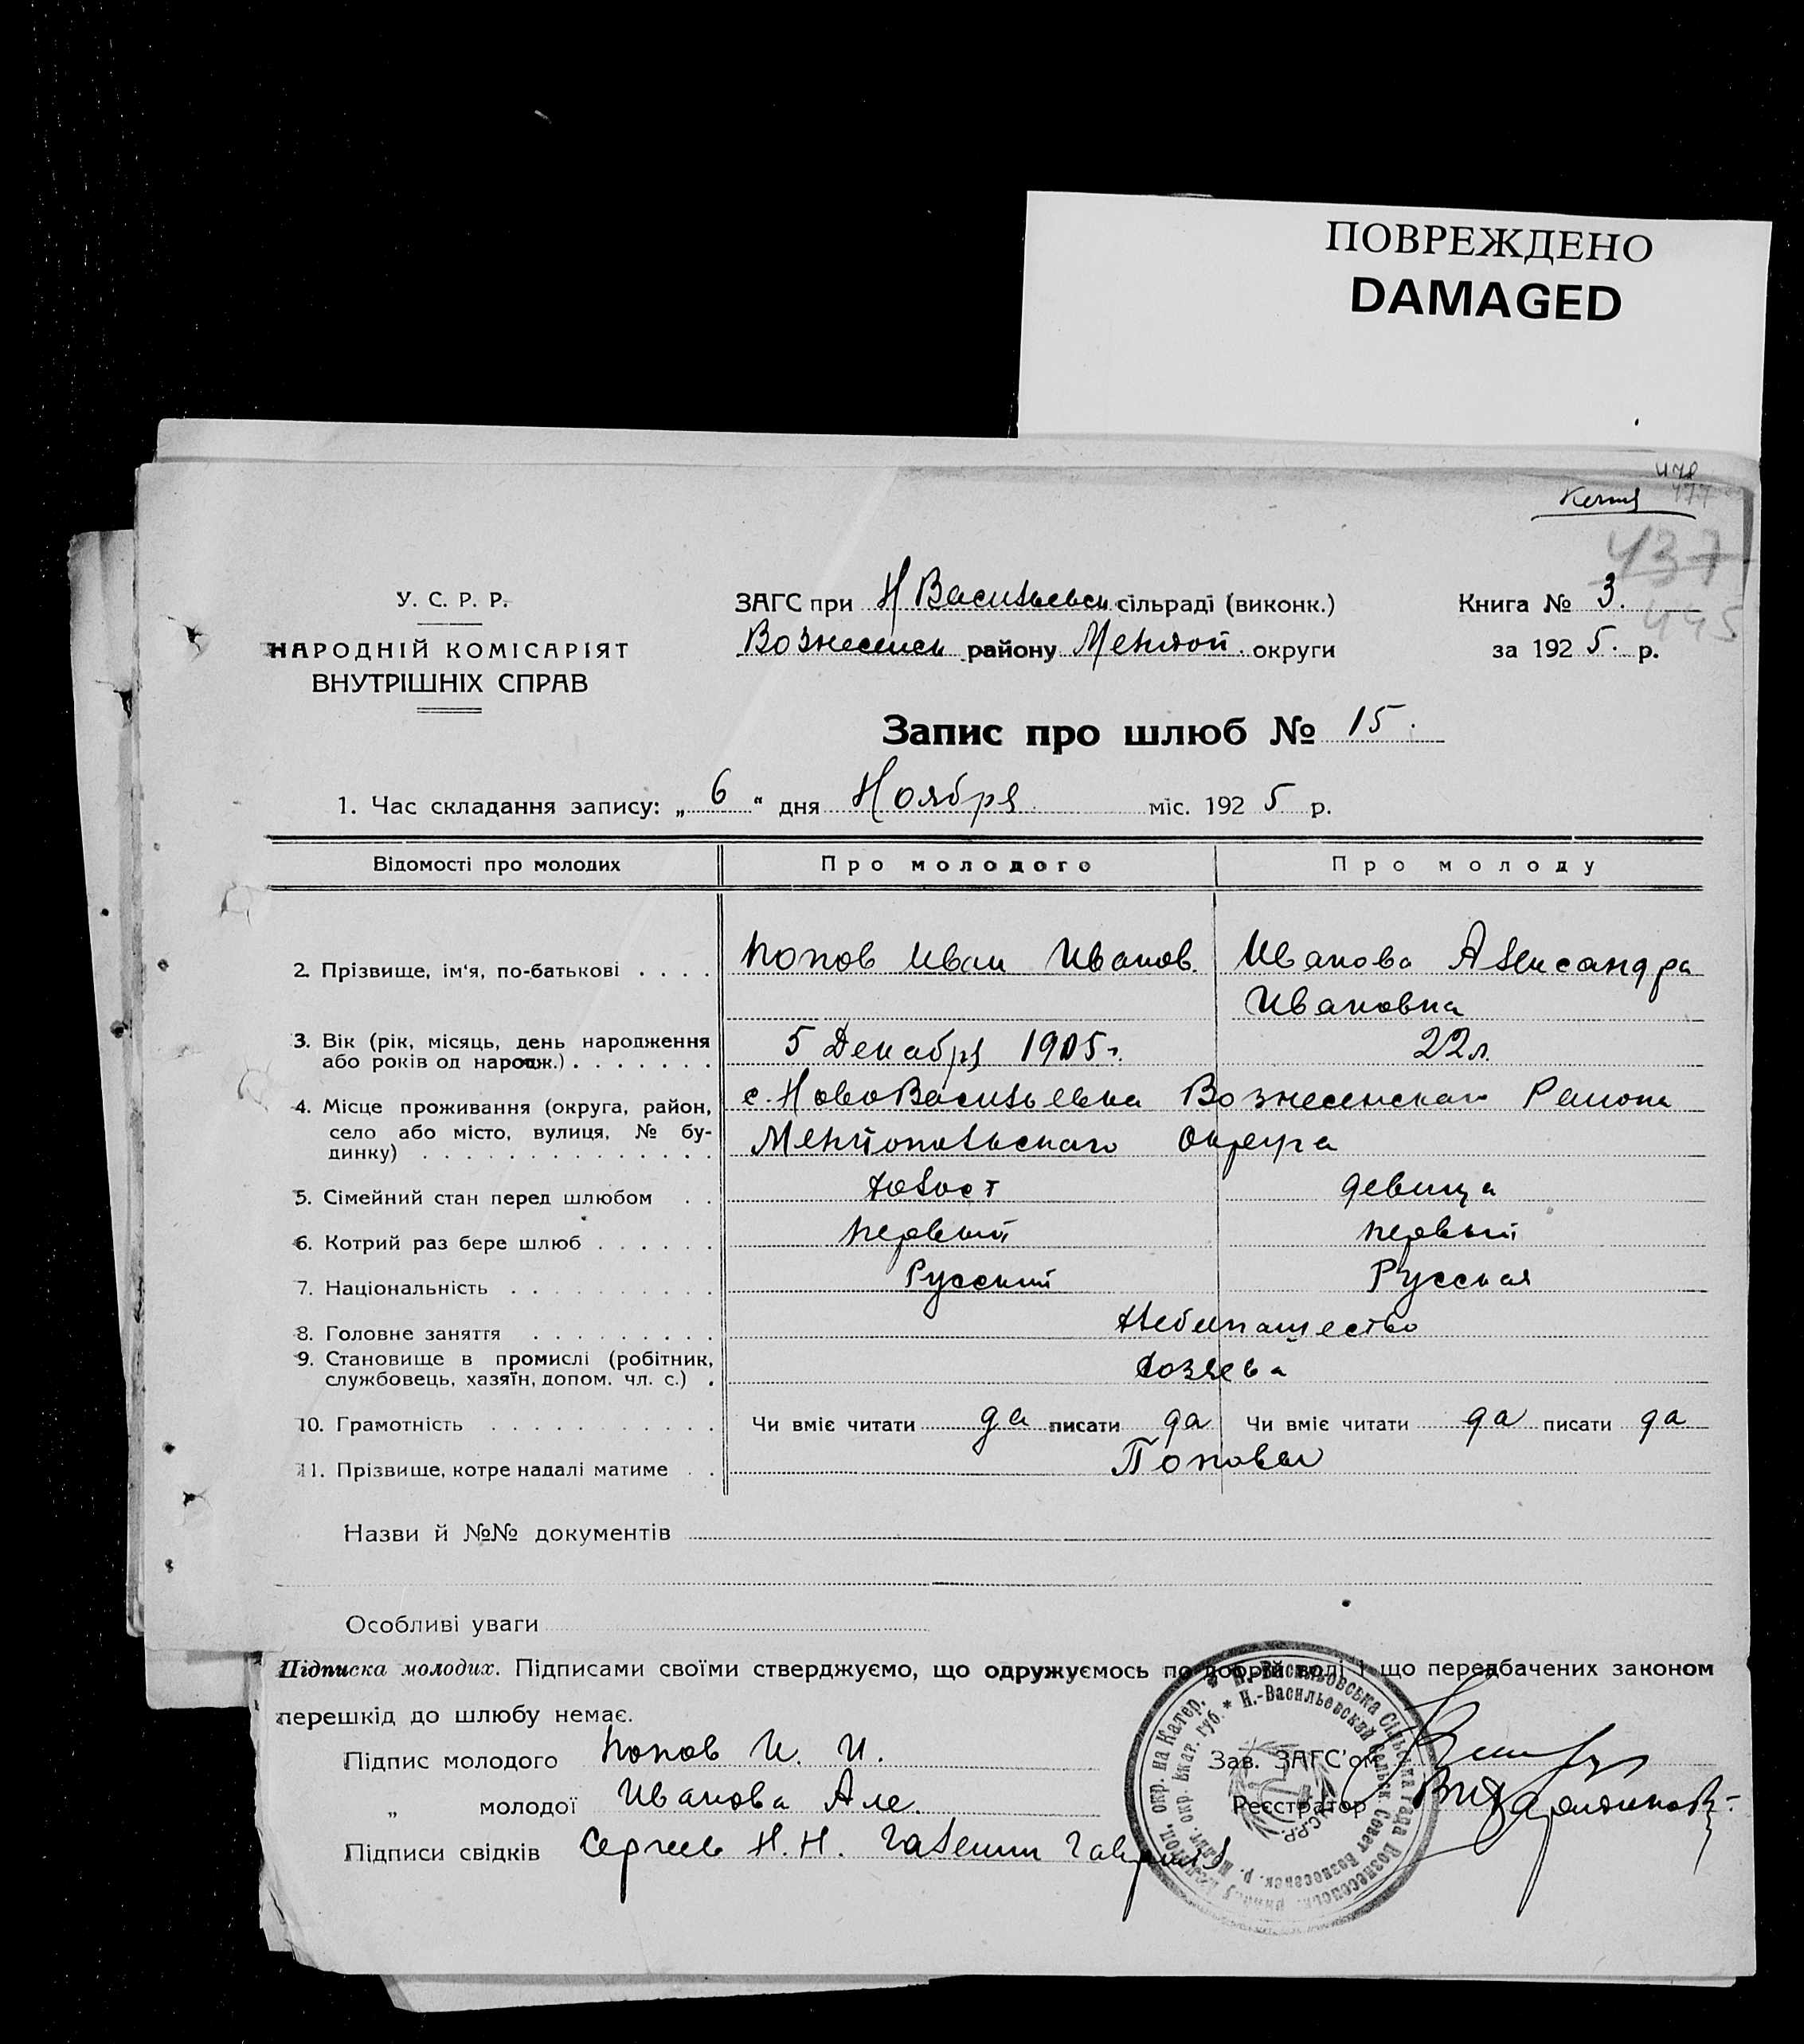 ПОВРЕЖДЕНО
DAMAGED
437
445
У. С. Р. Р.
НАРОДНІЙ КОМІСАРІЯТ
ВНУТРІШНІХ СПРАВ
ЗАГС при Н Васильевск сільраді (виконк.)
Вознесенск району Мелитой округи
Книга № 3.
за 1925. р.
Запис про шлюб № 15.
1. Час складання запису: „ 6 “ дня Ноября міс. 1925 р.
Відомості про молодих Про молодого Про молоду
2. Прізвище, ім'я, по-батькові . . . . Попов Иван Иванов. Иванова Александра
Ивановна
3. Вік (рік, місяць, день народження
або років од народж.) . . . . . . . 5 Декабря 1905 г. 22 л.
4. Місце проживання (округа, район, с. НовоВасильевка Вознесенскаго Раиона
село або місто, вулиця, № бу-
динку) . . . . . . . . . . . . . . Мелитопольскаго Округа
5. Сімейний стан перед шлюбом . . холост девица
6. Котрий раз бере шлюб . . . . . . первый первый
7. Національність . . . . . . . . . . Русский Русская
8. Головне заняття . . . . . . . . . Хлебопашество
9. Становище в промислі (робітник,
службовець, хазяїн, допом. чл. с.) . хозяева
10. Грамотність . . . . . . . . . . . Чи вміє читати да писати да Чи вміє читати да писати да
11. Прізвище, котре надалі матиме . . Поповы
Назви й №№ документів
Особливі уваги
Підписка молодих. Підписами своїми стверджуємо, що одружуємось по добрій волі і що передбачених законом
перешкід до шлюбу немає.
Підпис молодого Попов И. И.
„ молодої Иванова Але.
Підписи свідків Сергеев Н. Н. Галенин
Зав. ЗАГС'ом
Реєстратор
Н.-Васильевский Сельск Совет Вознесенск. р. Мелит. окр. Екат. губ.